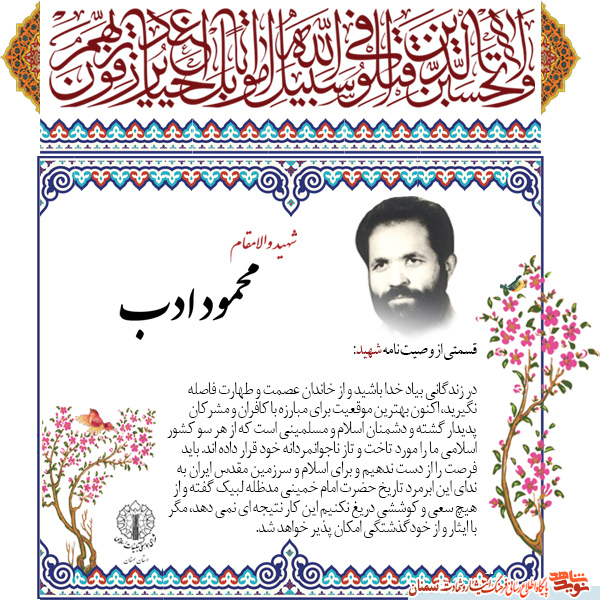 ولا تحسبن الذین قتلوا فی سبیل الله امواتا بل احیاء عند ربهم یرزقون
شهید والامقام
محمود ادب
قسمتی از وصیت نامه شهید:
در زندگانی بیاد خدا باشید و از خاندان عصمت و طهارت فاصله
نگیرید، اکنون بهترین موقعیت برای مبارزه با کافران و مشرکان
پدیدار گشته و دشمنان اسلام و مسلمینی است که از هر سو کشور
اسلامی ما را مورد تاخت و تاز ناجوانمردانه خود قرار داده اند. باید
فرصت را از دست ندهیم و برای اسلام و سرزمین مقدس ایران به
ندای این ابرمرد تاریخ حضرت امام خمینی مدظله لبیک گفته و از
هیچ سعی و کوششی دریغ نکنیم این کار نتیجه ای نمی دهد، مگر
با ایثار و از خودگذشتگی امکان پذیر خواهد شد.
استان سمنان
نوید شاهد
پایگاه اطلاع رسانی فرهنگ ایثار و شهادت سمنان